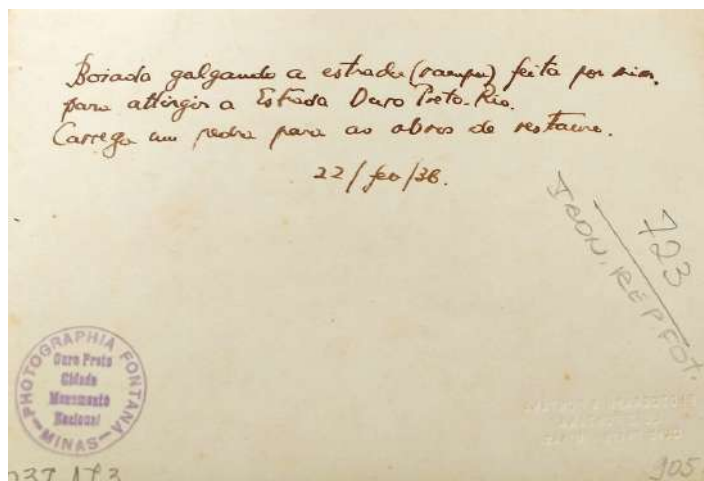 Boiada galgando a estrada (rampa) feita por mim.
para attingir a Estrada Ouro Preto-Rio.
Carrega um pedra para as obras de restauro.
22/fev/36.
723
ICON. REP FOT.
PHOTOGRAPHIA FONTANA
Ouro Preto
Cidade
Monumento
Nacional
MINAS
905